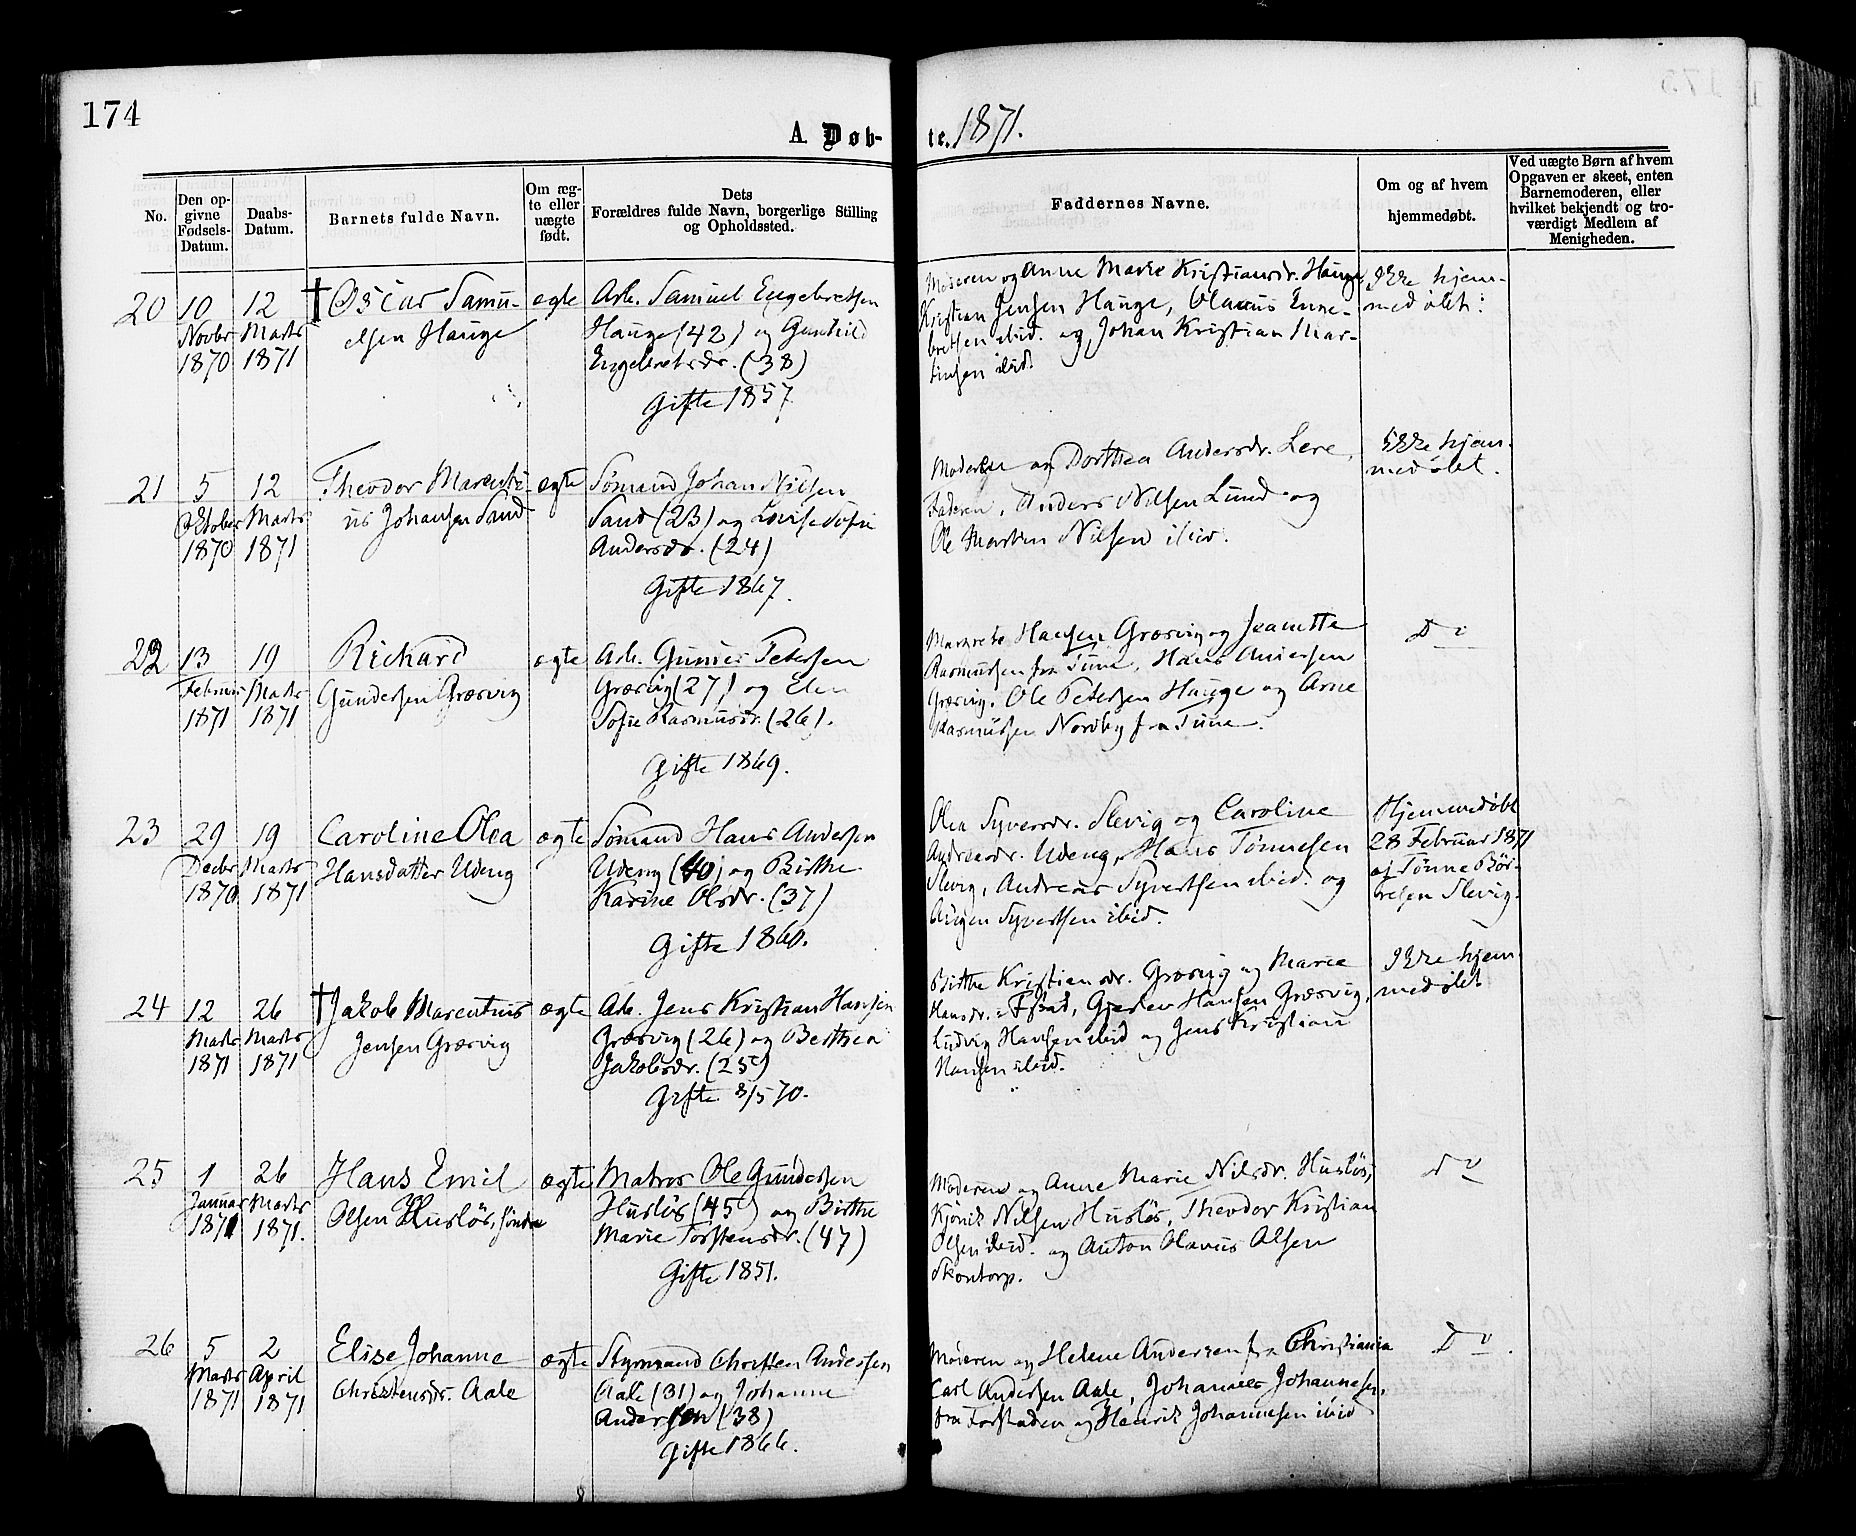 174
A. Døb-
te. 1871.
No.
Den op-
givne
Fødsels-
Datum.
Daabs-
Datum.
Barnets fulde Navn.
Om æg-
te eller
uægte
født.
Dets
Forældres fulde Navn, borgerlige Stilling
og Opholdssted.
Faddernes Navne.
Om og af hvem
hjemmedøbt.
Ved uægte Børn af hvem
Opgaven er skeet, enten
Barnemoderen, eller
hvilket bekjendt og tro-
værdigt Medlem af
Menigheden.
20
10
Novbr
1870
12
Marts
1871
† Oscar Samu-
elsen Hauge
ægte
Arb. Samuel Engebretsen
Hauge (42) og Gunhild
Engebretsdr. (38)
Gifte 1857
Moderen og Anne Marie Kristiansdr. Hauge,
Kristian Jensen Hauge, Olaus Enne-
bretsen ibid. og Johan Kristian Mar-
tinsen ibid.
Ikke hjem-
med øbt.
21
5
Oktober
1870
12
Marts
1871
Theodor Marenti-
us Johansen Sand
ægte
Sømand Johan Nilsen
Sand (23) og Lovise Sofie
Andersdr. (24)
Gifte 1867.
Moderen og Dorthea Andersdr. Lere,
Faderen, Anders Nilsen Lund og
Ole Martin Nilsen ibid.
Ikke hjem-
med øbt.
22
13
Februar
1871
19
Marts
1871
Rickard
Gundersen Græsvig
ægte
Arb. Gunder Petersen
Græsvig (27) og Elen
Sofie Rasmusdr. (26).
Gifte 1869.
Margrete Hansen Græsvig og Jeanette
Rasmussen fra Tune, Hans Andersen
Græsvig, Ole Petersen Hauge og Arne
Rasmussen Nordby fra Tune.
Do
23
29
Decbr
1870
19
Marts
1871
Caroline Olea
Hansdatter Udeng
ægte
Sømand Hans Andersen
Udeng (40) og Birthe
Karine Olsdr. (37)
Gifte 1860.
Olea Syversdr. Slevig og Caroline
Andreasdr. Udeng, Hans Tønnesen
Slevig, Andreas Syvertsen ibid. og
Syvertsen ibid.
Hjemmedøbt
28 Februar 1871
af Tønne Bør-
resen Slevig.
24
12
Marts
1871
26
Marts
1871
† Jakob Marentius
Jensen Græsvig
ægte
Arb. Jens Kristian Hansen
Græsvig (26) og Berthea
Jakobsdr. (25)
Gifte 8/5 70.
Birthe Kristiansdr. Græsvig og Marie
Hansdr. ibid, Hansen Græsvig,
Ludvig Hansen ibid og Jens Kristian
Hansen ibid.
Ikke hjem-
med øbt
25
1
Januar
1871
26
Marts
1871.
Hans Emil
Olsen Husløs, søndre
ægte
Matros Ole Gundersen
Husløs (45) og Birthe
Marie Torstensdr. (47)
Gifte 1851.
Moderen og Anne Marie Nilsdr. Husløs,
Kjønik Nilsen Husløs, Theodor Kristian
Olsen ibid. og Anton Olavus Olsen
Skontorp.
do
26
5
Marts
1871
2
April
1871
Elise Johanne
Christensdr. Aale
ægte
Styrmand Christen Andersen
Aale (31) og Johanne
Andersen (38)
Gifte 1866.
Moderen og Helene Andersen fra Christiania
Carl Andersen Aale, Johannes Johannesen,
fra Forstaden og Henrik Johannesen ibid
Do.